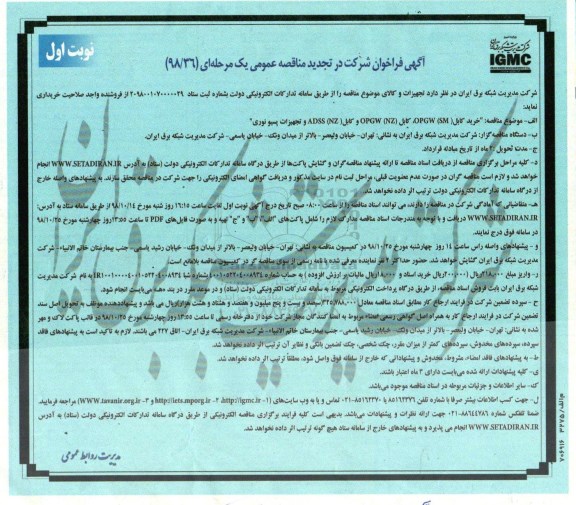 نوبت اول
شرکت مدیریت شبکه برق ایران
IGMC
آگهی فراخوان شرکت در تجدید مناقصه عمومی یک مرحله‌ای (۹۸/۳۶)
شرکت مدیریت شبکه برق ایران در نظر دارد تجهیزات و کالای موضوع مناقصه را از طریق سامانه تدارکات الکترونیکی دولت بشماره ثبت ستاد ۲۰۹۸۰۰۱۰۷۰۰۰۰۰۲۹ از فروشنده واجد صلاحیت خریداری
نماید:
الف - موضوع مناقصه: "خرید کابل OPGW (SM)، کابل OPGW (NZ) و کابل ADSS (NZ) و تجهیزات پسیو نوری"
ب- دستگاه مناقصه گزار: شرکت مدیریت شبکه برق ایران به نشانی: تهران- خیابان ولیعصر- بالاتر از میدان ونک- خیابان یاسمی- شرکت مدیریت شبکه برق ایران.
ج- مدت تحویل ماه از تاریخ مبادله قرارداد.
د- کلیه مراحل برگزاری مناقصه از دریافت اسناد مناقصه تا ارائه پیشنهاد مناقصه‌گران و گشایش پاکت‌ها از طریق درگاه سامانه تدارکات الکترونیکی دولت (ستاد) به آدرس WWW.SETADIRAN.IR انجام
خواهد شد و لازم است مناقصه گران در صورت عدم عضویت قبلی، مراحل ثبت نام در سایت مذکور و دریافت گواهی امضای الکترونیکی را جهت شرکت در مناقصه محقق سازند. به پیشنهادهای واصله خارج
از درگاه سامانه تدارکات الکترونیکی دولت ترتیب اثر داده نخواهد شد.
ه- متقاضیانی که آمادگی شرکت در مناقصه را دارند می توانند اسناد مناقصه را از ساعت ۰۸:۰۰ صبح تاریخ درج آگهی نوبت اول لغایت ساعت ۱۶:۱۵ روز شنبه مورخ از طریق سامانه ستاد به آدرس:
WWW.SETADIRAN.IR دریافت و با توجه به مندرجات اسناد مناقصه مدارک لازم را شامل پاکت‌های "الف"، "ب" و "ج" تهیه و به صورت فایل‌های PDF تا ساعت ۱۳:۵۵ روز چهارشنبه مورخ ۹۸/۱۰/۲۵
در سامانه فوق درج نمایند.
و - پیشنهادهای واصله راس ساعت ۱۴ روز چهارشنبه مورخ ۹۸/۱۰/۲۵ در کمیسیون مناقصه به نشانی: تهران- خیابان ولیعصر- بالاتر از میدان ونک- خیابان رشید یاسمی- جنب بیمارستان خاتم الانبیاء- شرکت
مدیریت شبکه برق ایران گشایش خواهد شد. حضور حداکثر ۲ نفر نماینده معرفی شده با نامه رسمی از سوی مناقصه گر در کمیسیون مناقصه بلامانع است.
ز- واریز مبلغ ریال خرید اسناد و ریال مالیات بر ارزش افزوده به حساب شماره شبا به نام شرکت مدیریت
شبکه برق ایران بابت فروش اسناد مناقصه از طریق درگاه پرداخت الکترونیکی مربوط به سامانه تدارکات الکترونیکی دولت (ستاد) و در موعد مقرر در بند "ه" می بایست انجام شود.
ح - سپرده تضمین شرکت در فرایند ارجاع کار مطابق اسناد مناقصه معادل سیصد و بیست و پنج میلیون و هفتصد و هشتاد و هشت هزار ریال می باشد و پیشنهاددهنده موظف به تحویل اصل سند
تضمین شرکت در فرایند ارجاع کار به همراه اصل "گواهی رسمی امضاء" مربوط به امضا کنندگان مجاز شرکت خود از دفترخانه رسمی تا ساعت ۱۳:۵۵ روز چهارشنبه مورخ ۹۸/۱۰/۲۵ در قالب پاکت لاک و مهر
شده به نشانی: تهران- خیابان ولیعصر- بالاتر از میدان ونک- خیابان رشید یاسمی- بیمارستان خاتم الانبیاء- شرکت مدیریت شبکه برق ایران- اتاق ۲۲۷ می باشند. لازم به تاکید است به پیشنهادهای فاقد
سپرده، سپرده‌های مخدوش، سپرده‌های کمتر از میزان مقرر، چک شخصی، چک تضمین بانکی و نظایر آن ترتیب اثر داده نخواهد شد.
ط- به پیشنهادهای فاقد امضاء، مشروط، مخدوش و پیشنهاداتی که خارج از سامانه فوق واصل شود، مطلقاً ترتیب اثر داده نخواهد شد.
ی- کلیه پیشنهادات ارائه شده می‌بایست دارای ۳ ماه اعتبار باشند.
ک- سایر اطلاعات و جزئیات مربوطه در اسناد مناقصه موجود می‌باشد.
ل- جهت کسب اطلاعات بیشتر صرفا با شماره تلفن تماس و یا به وب سایت‌های (۱- http://igmc.ir، ۲- http://iets.mporg.ir و ۳- www.tavanir.org.ir) مراجعه فرمایید.
ضمنا تلفکس شماره جهت ارائه نظرات و پیشنهادات می‌باشد. بدیهی است کلیه فرایند برگزاری مناقصه الکترونیکی از طریق درگاه سامانه تدارکات الکترونیکی دولت (ستاد) به آدرس
WWW.SETADIRAN.IR انجام می پذیرد و به پیشنهادهای خارج از سامانه ستاد هیچ گونه ترتیب اثر داده نخواهد شد.
مدیریت روابط عمومی
م‌الف/۳۲۷۵
۷۰۶۹۱۶